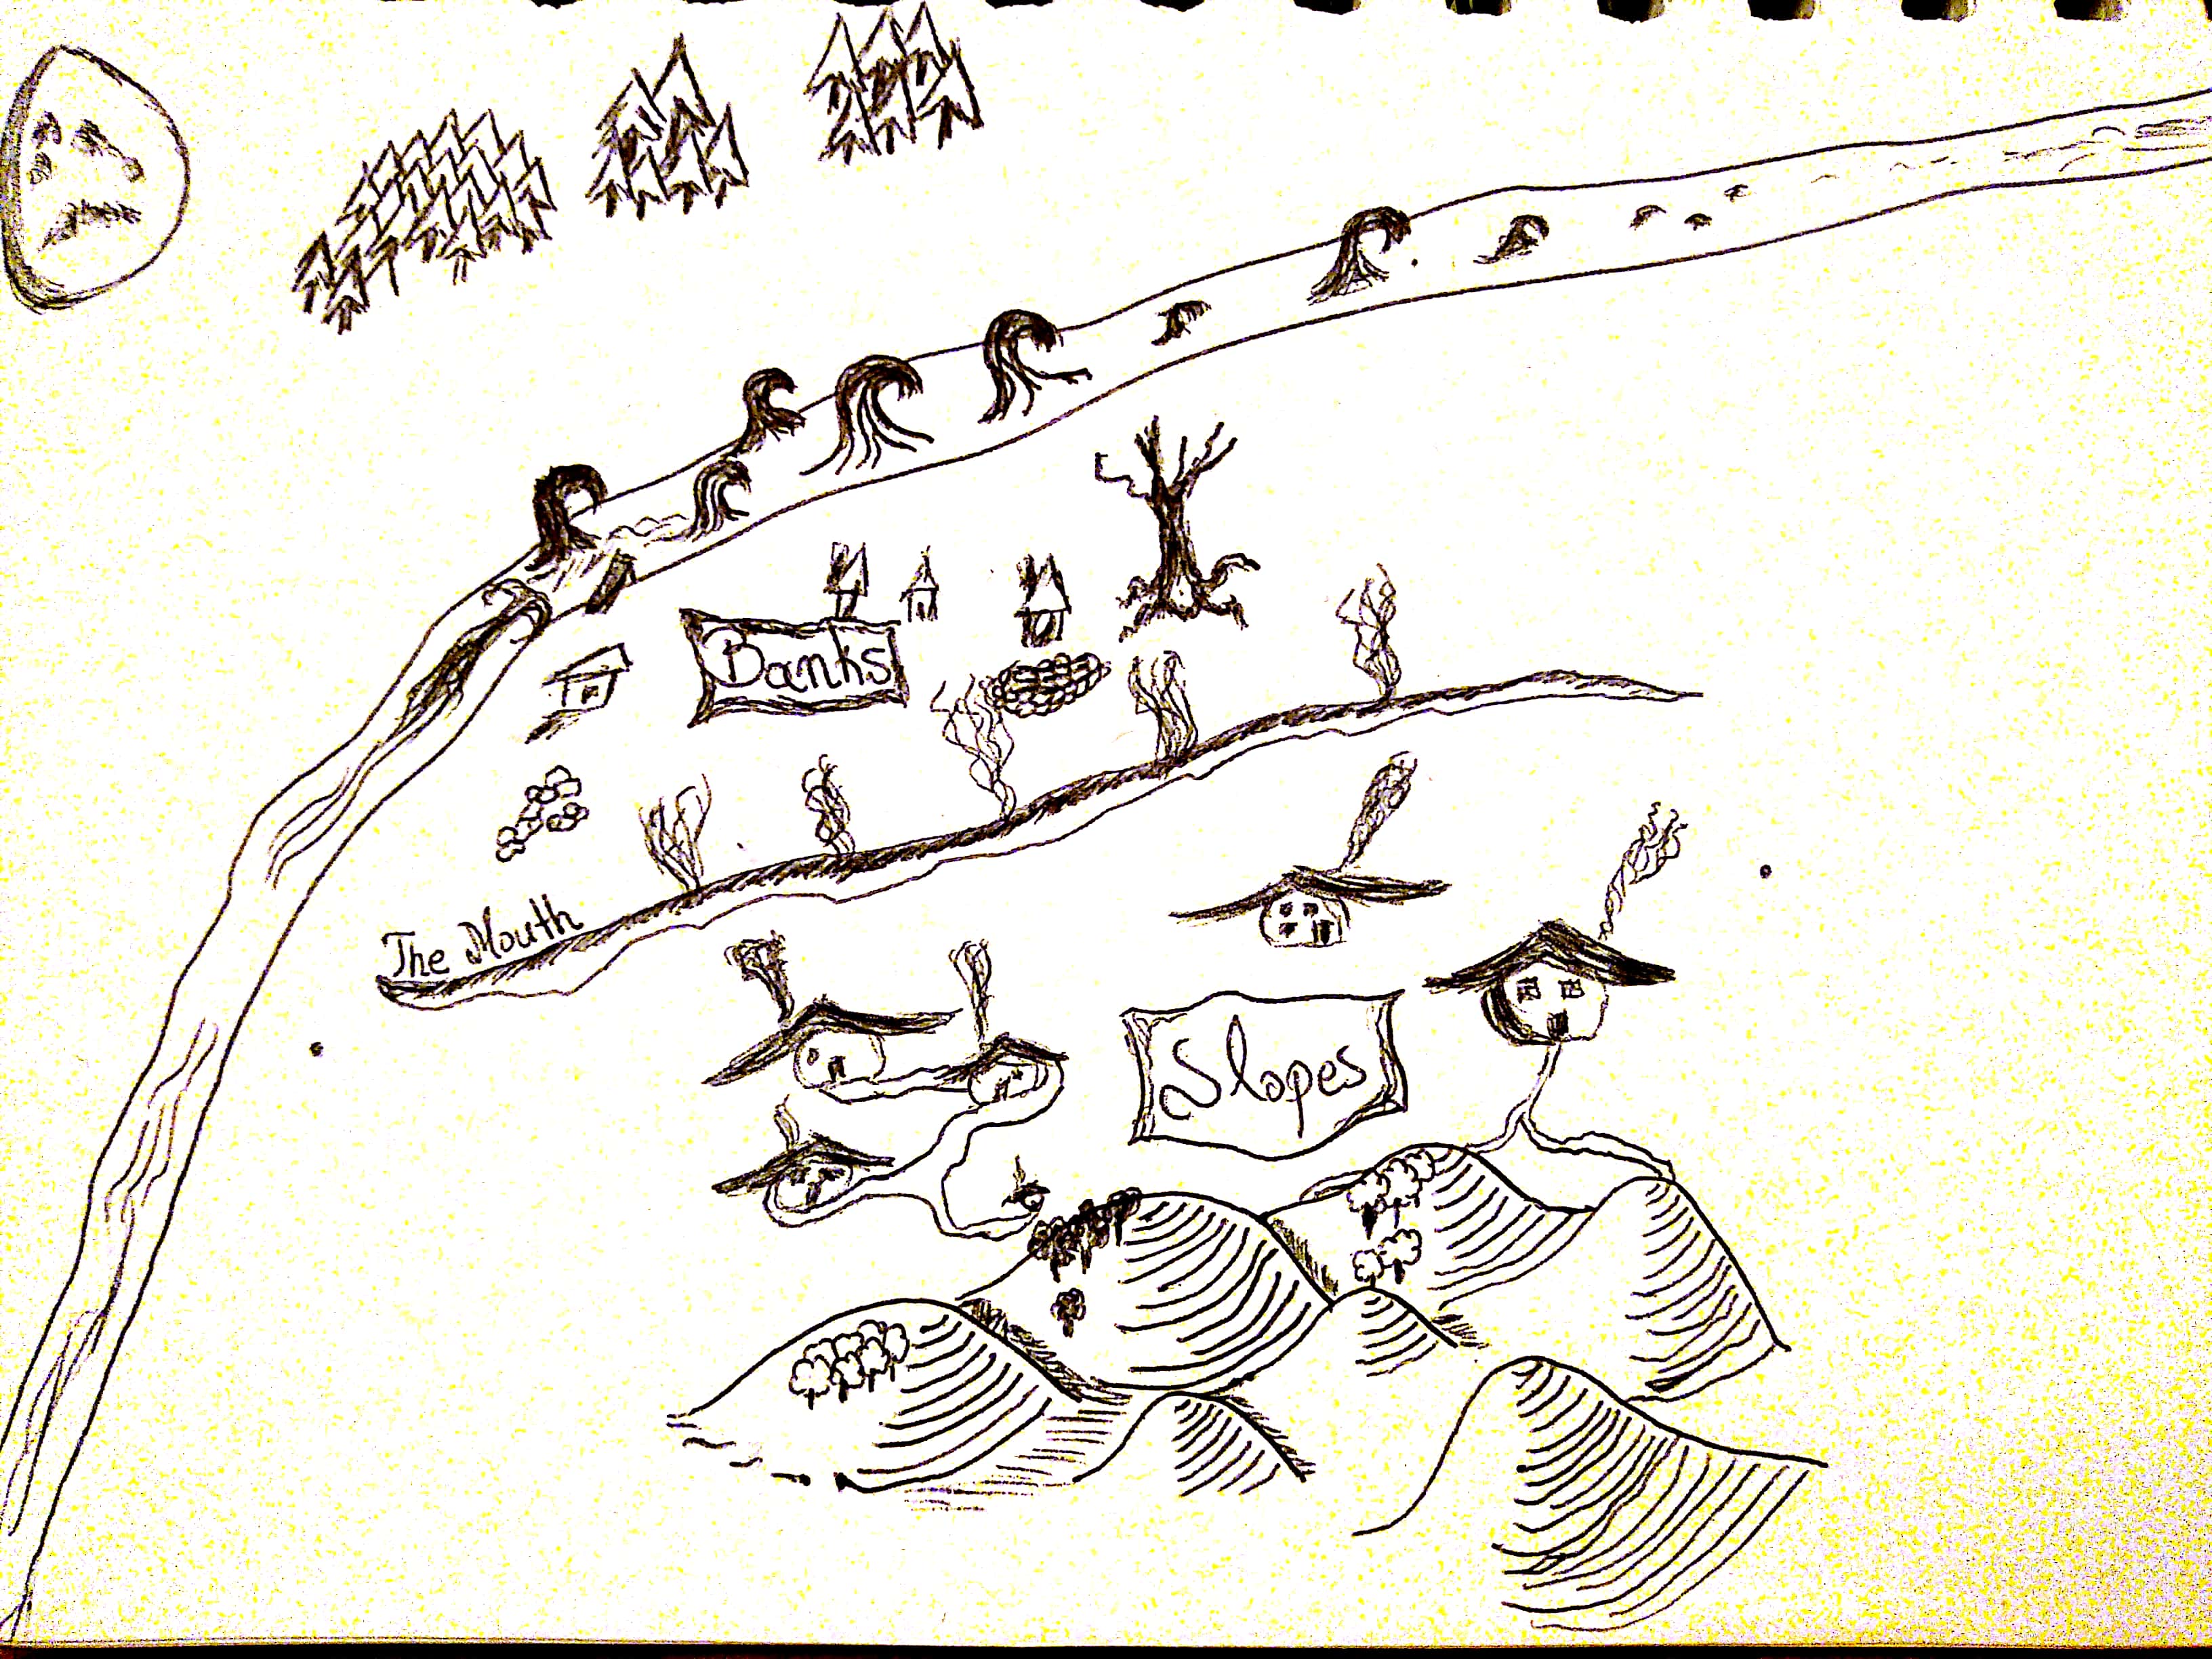 Banks
The Mouth
Slopes